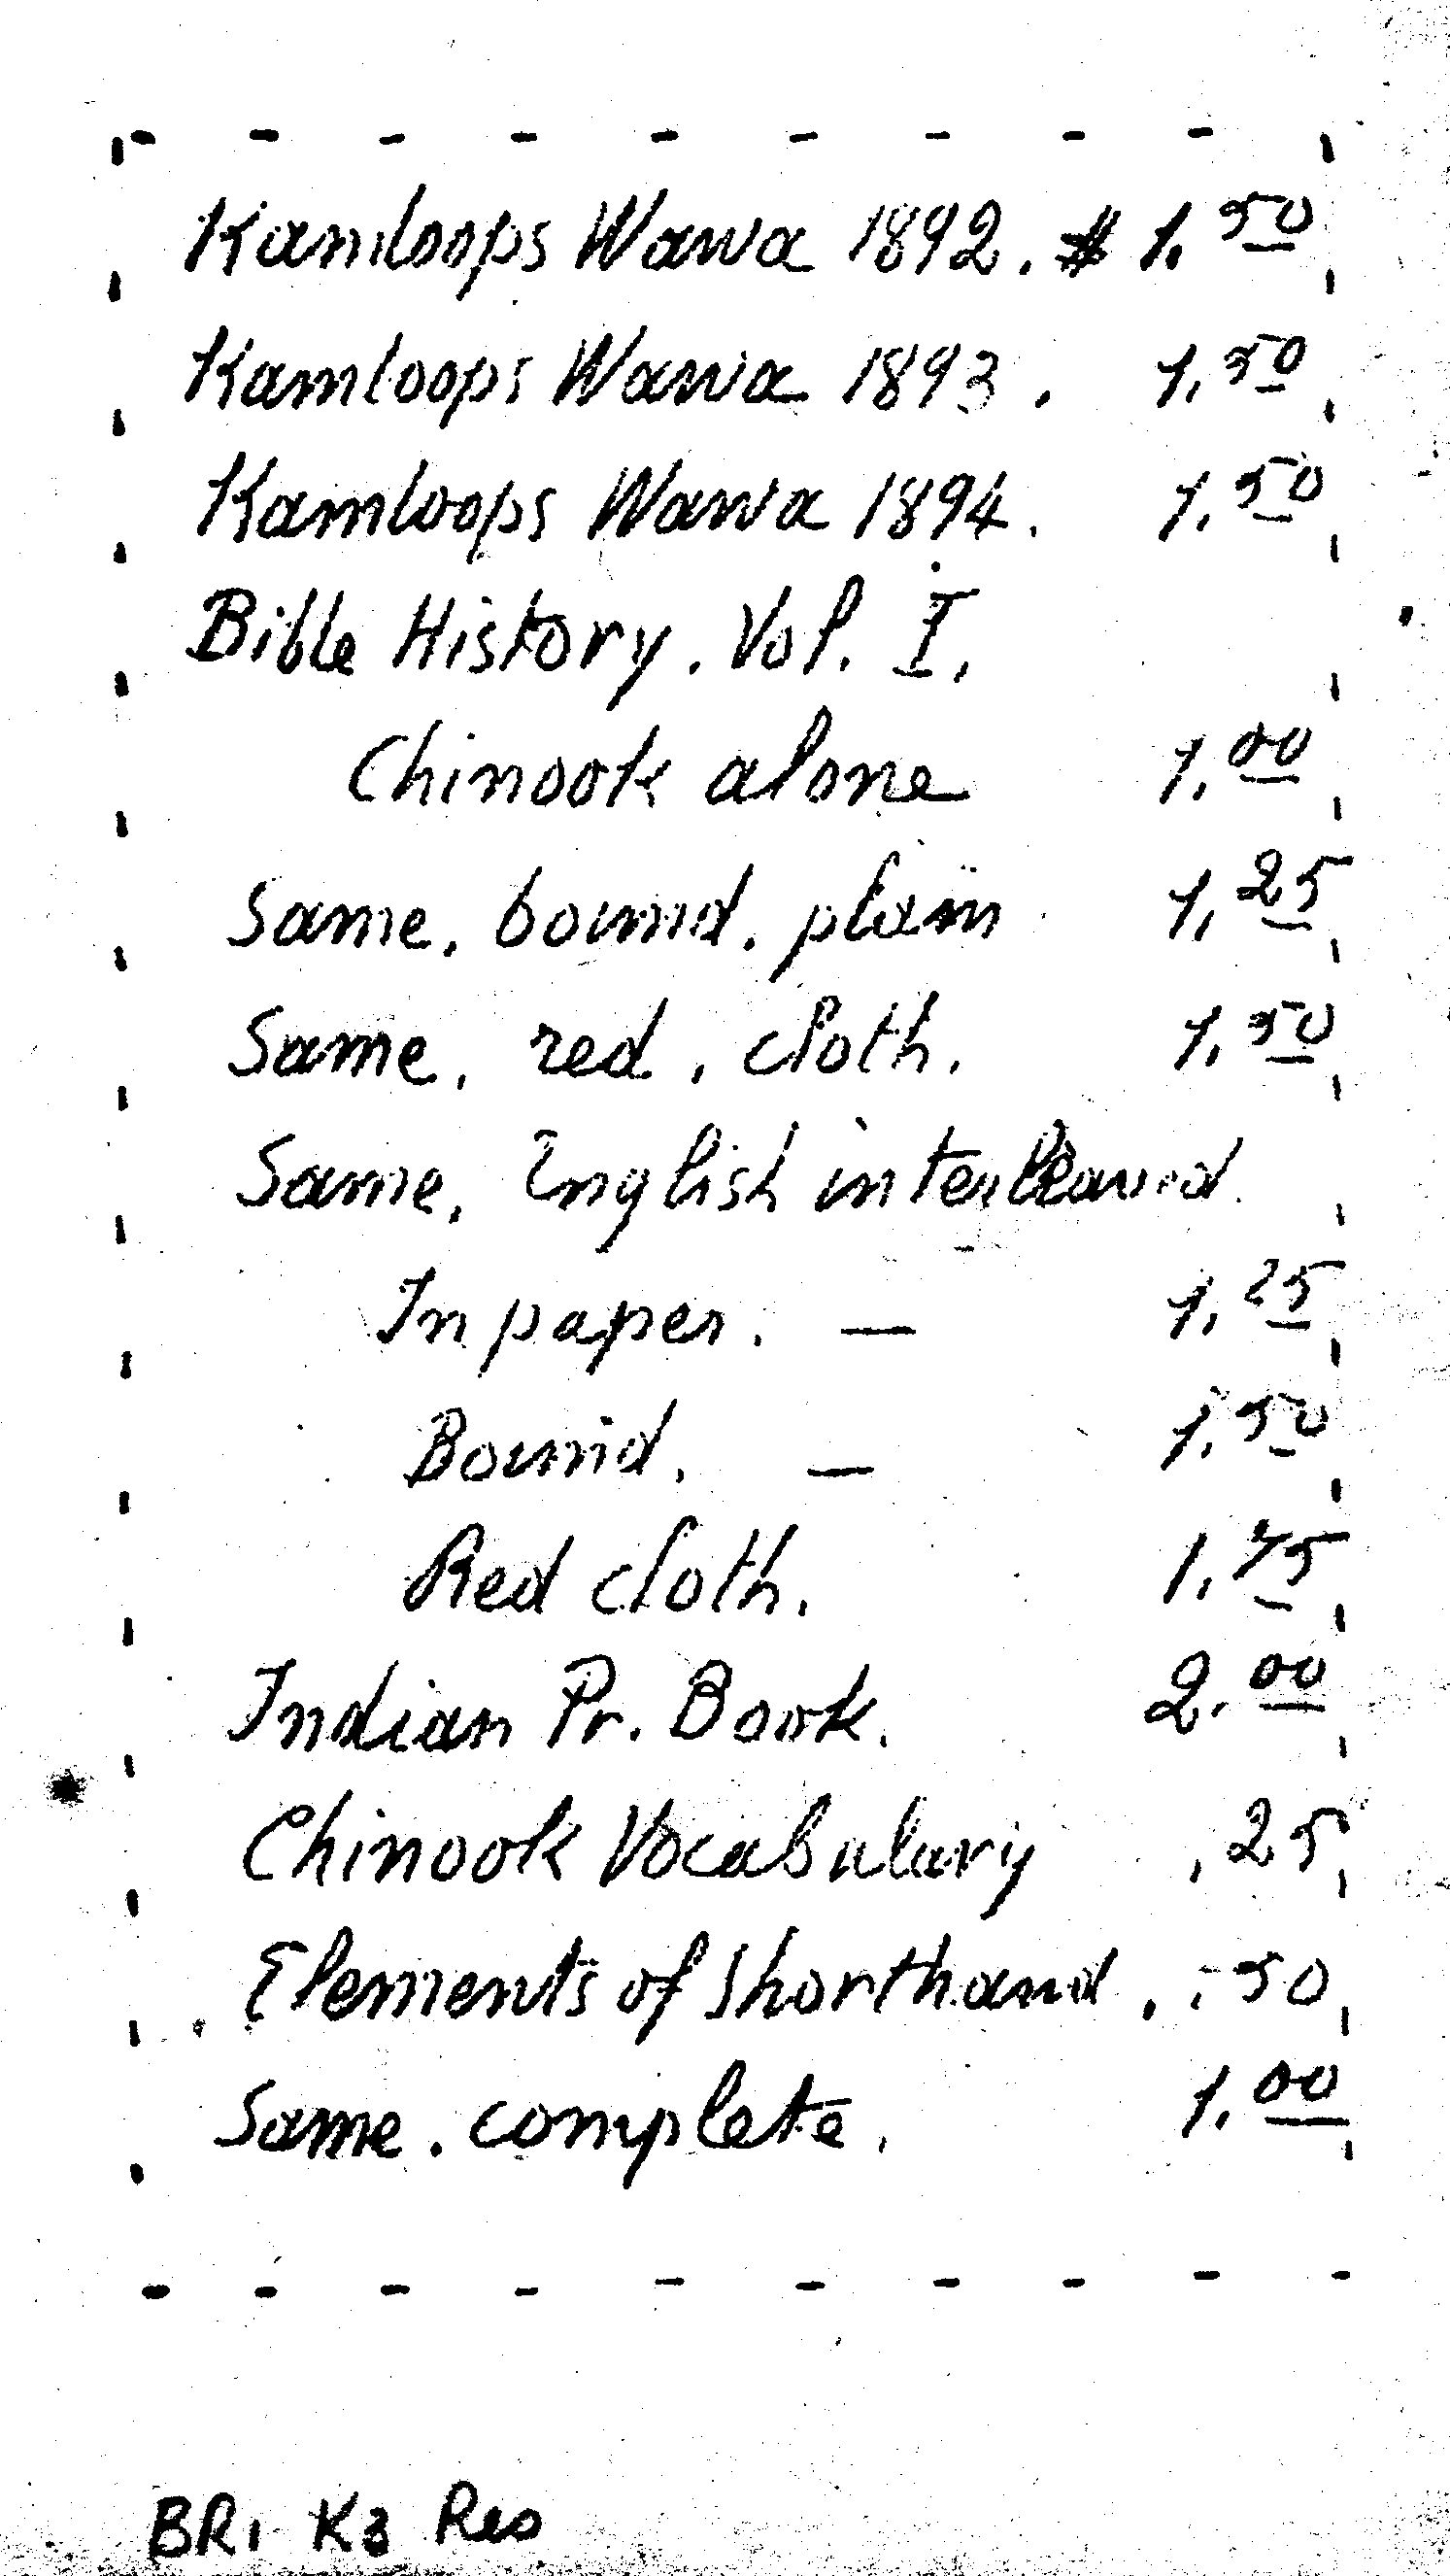 Kamloops Wawa 1892. $ 1.50
Kamloops Wawa 1893. 1.50
Kamloops Wawa 1894. 1.50
Bible History. Vol. I.
Chinook alone 1.00
Same, bound, plain 1.25
Same, red, cloth. 1.50
Same, English interleaved.
In paper. — 1.25
Bound. — 1.50
Red cloth. 1.75
Indian Pr. Book. 2.00
Chinook Vocabulary .25
Elements of Shorthand. .50
Same. complete. 1.00
BR1 K3 Res